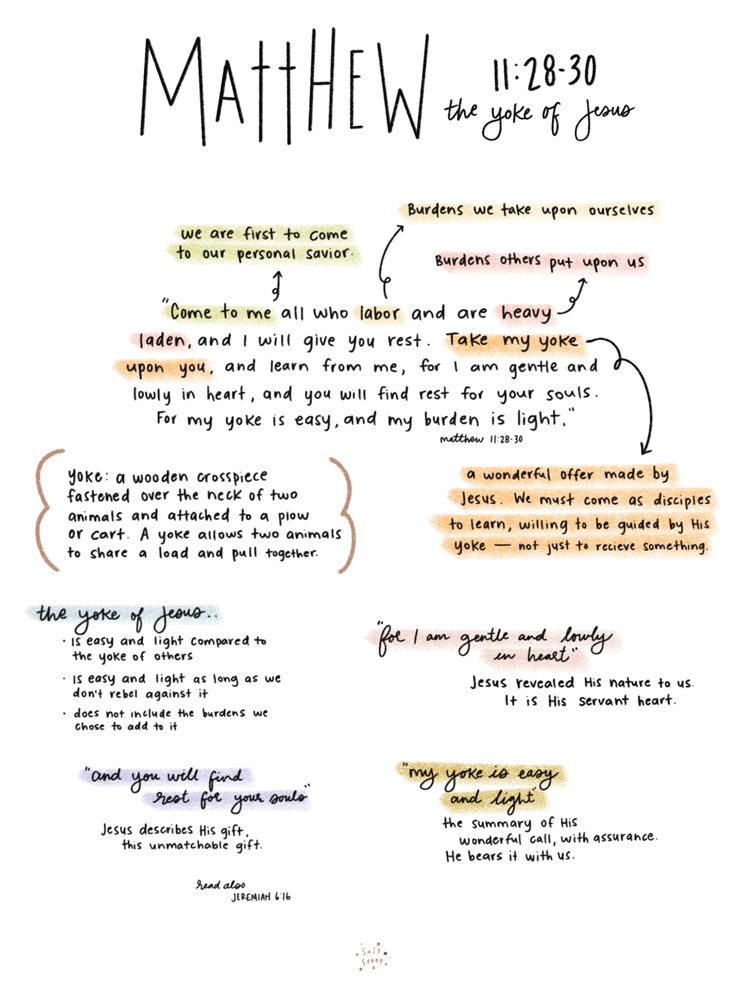 MATTHEW 11:28-30
the yoke of Jesus
Burdens we take upon ourselves
we are first to come
to our personal savior.
Burdens others put upon us
"Come to me all who labor and are heavy
laden, and I will give you rest. Take my yoke
upon you, and learn from me, for I am gentle and
lowly in heart, and you will find rest for your souls.
For my yoke is easy, and my burden is light."
matthew 11:28-30
Yoke: a wooden crosspiece
fastened over the neck of two
animals and attached to a plow
or cart. A yoke allows two animals
to share a load and pull together.
a wonderful offer made by
Jesus. We must come as disciples
to learn, willing to be guided by His
yoke — not just to recieve something.
the yoke of Jesus..
· is easy and light compared to
the yoke of others
· is easy and light as long as we
don't rebel against it
· does not include the burdens we
chose to add to it
"for I am gentle and lowly
in heart"
Jesus revealed His nature to us.
It is His servant heart.
"and you will find
rest for your souls"
Jesus describes His gift,
this unmatchable gift.
"my yoke is easy
and light"
the summary of His
wonderful call, with assurance.
He bears it with us.
read also
JEREMIAH 6:16
Salt
Scoop